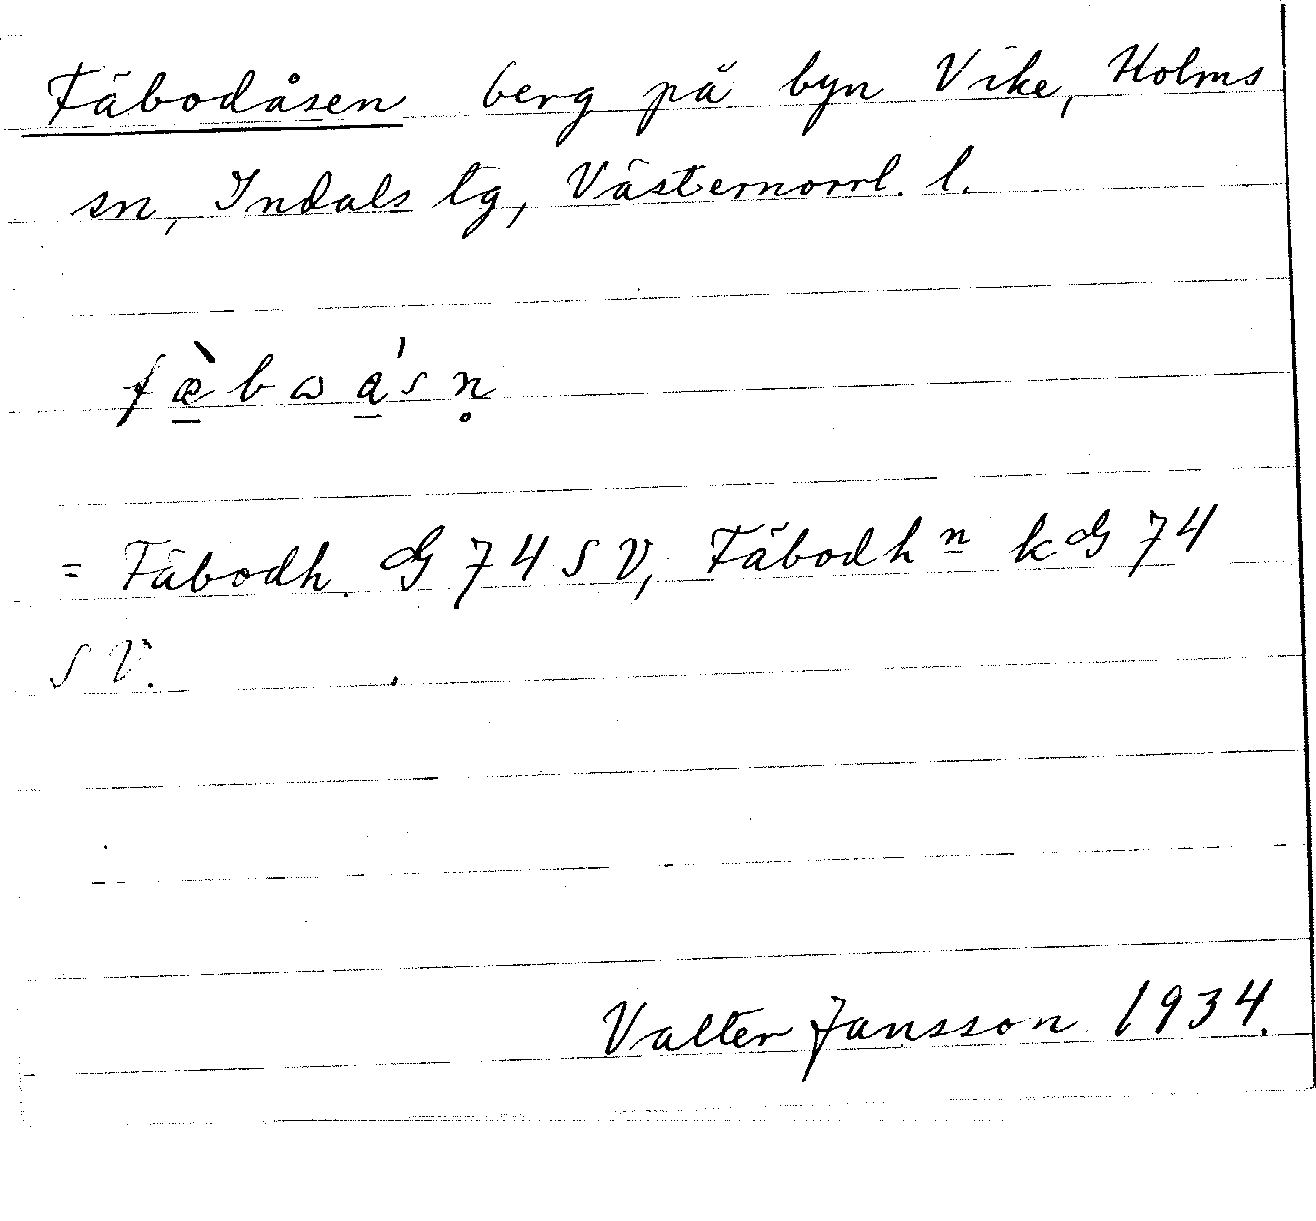 Fäbodåsen berg på byn Vike, Holms
sn, Indals tg, Västernorrl. l.
fæ̲̀bωa̲'sn̥
= Fäbodh. G 74 SV, Fäbodhn kG 74
SV.
Valter Jansson 1934.